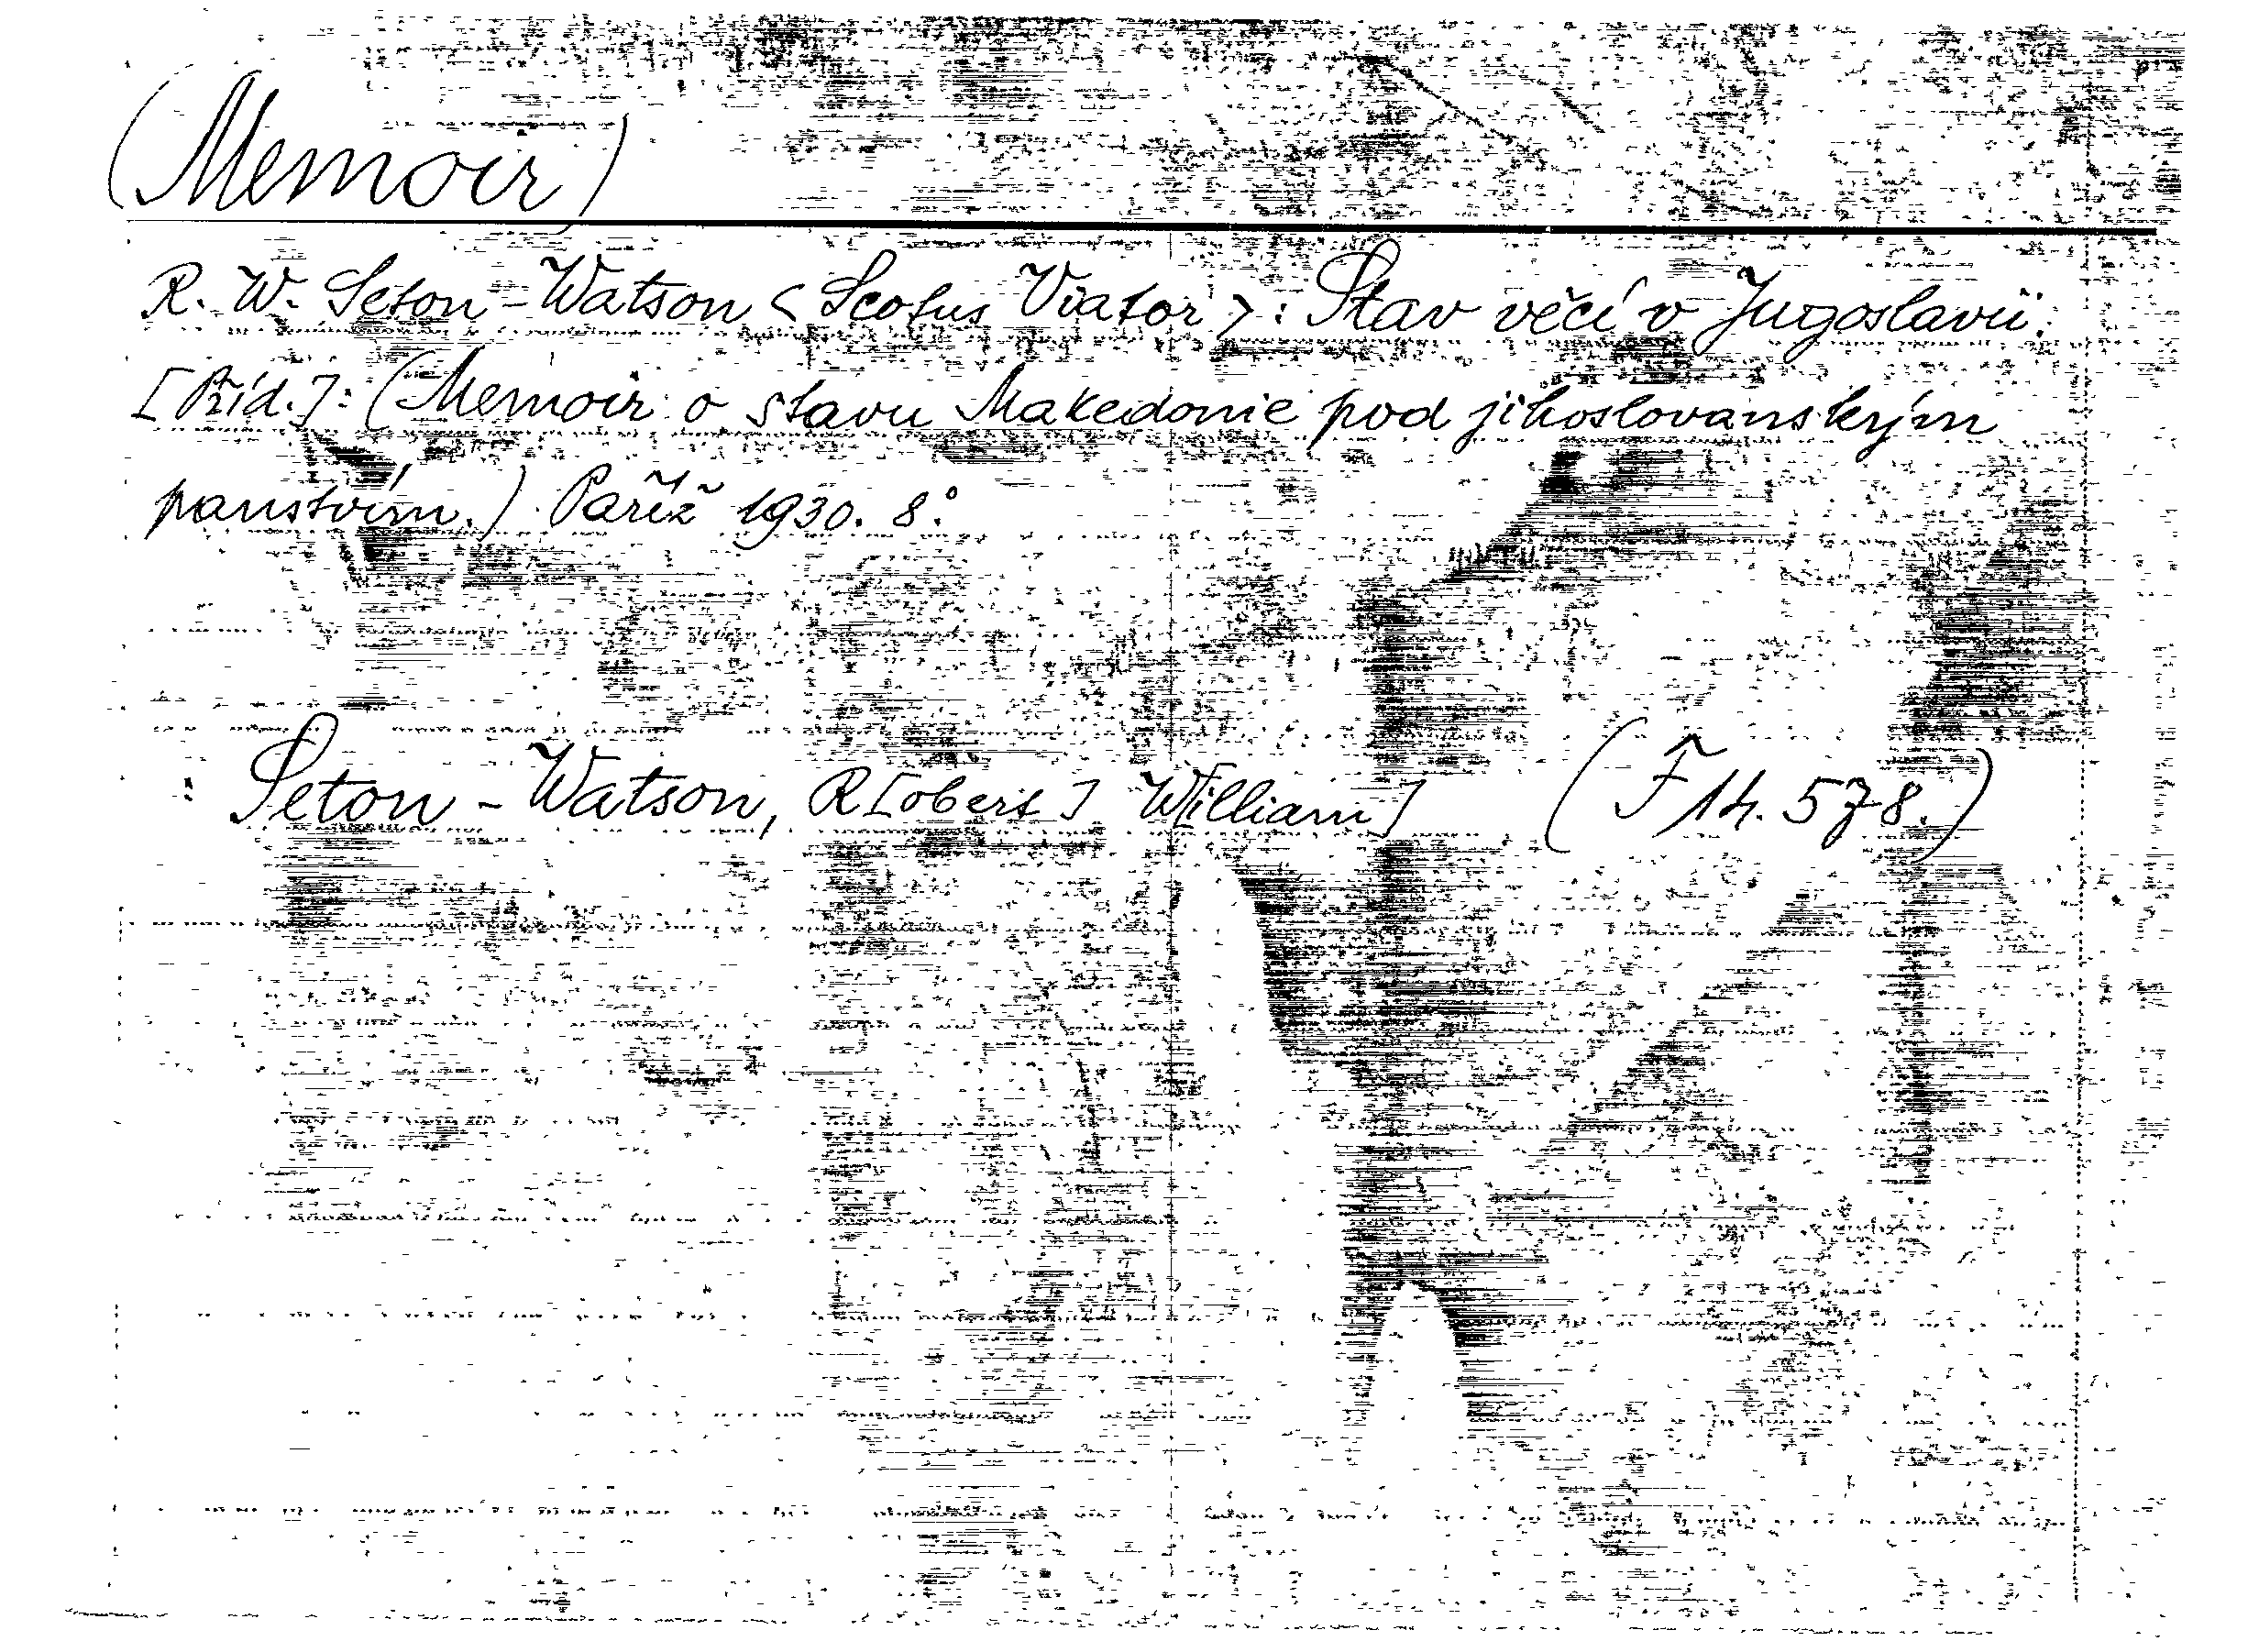 (Memoir)
R. W. Seton-Watson < Scotus Viator > : Stav věcí v Jugoslavii.
[Příd.]: (Memoir o stavu Makedonie pod jihoslovanským
panstvím.) Paříž 1930. 8°.
Seton-Watson, R[obert] William] (F 14.578.)